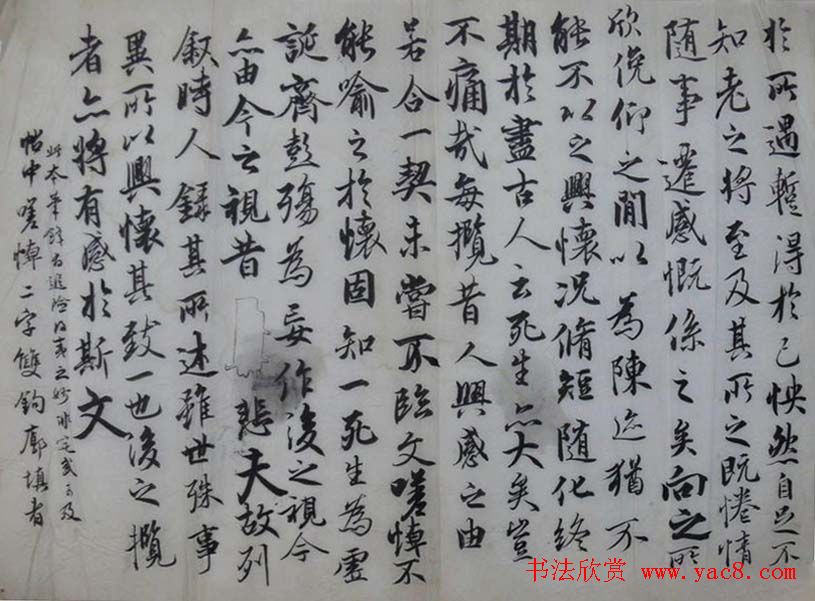 於所遇蹔得於己怏然自足不
知老之将至及其所之既惓情
随事遷感慨係之矣向之所
欣俛仰之閒以為陳迹猶不
能不以之興懷况脩短随化終
期於盡古人云死生亦大矣豈
不痛哉每攬昔人興感之由
若合一契未嘗不臨文嗟悼不
能喻之於懷固知一死生為虚
誕齊彭殤為妄作後之視今
亦由今之視昔悲夫故列
叙時人録其所述雖世殊事
異所以興懷其致一也後之攬
者亦将有感於斯文
此本筆鋒之妙非定武可及
帖中嗟悼二字雙鉤廓填者
书法欣赏 www.yac8.com